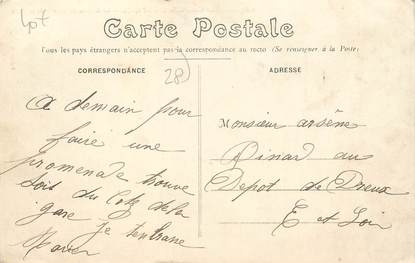 lot
Carte Postale
Tous les pays étrangers n'acceptent pas la correspondance au recto (Se renseigner à la Poste)
CORRESPONDANCE
28
ADRESSE
a demain pour
faire une
promenade trouve
toit du Coté de la
gare je tembrasse
Monsieur arsène
Dinard au
Depot de Dreux
E et Loir